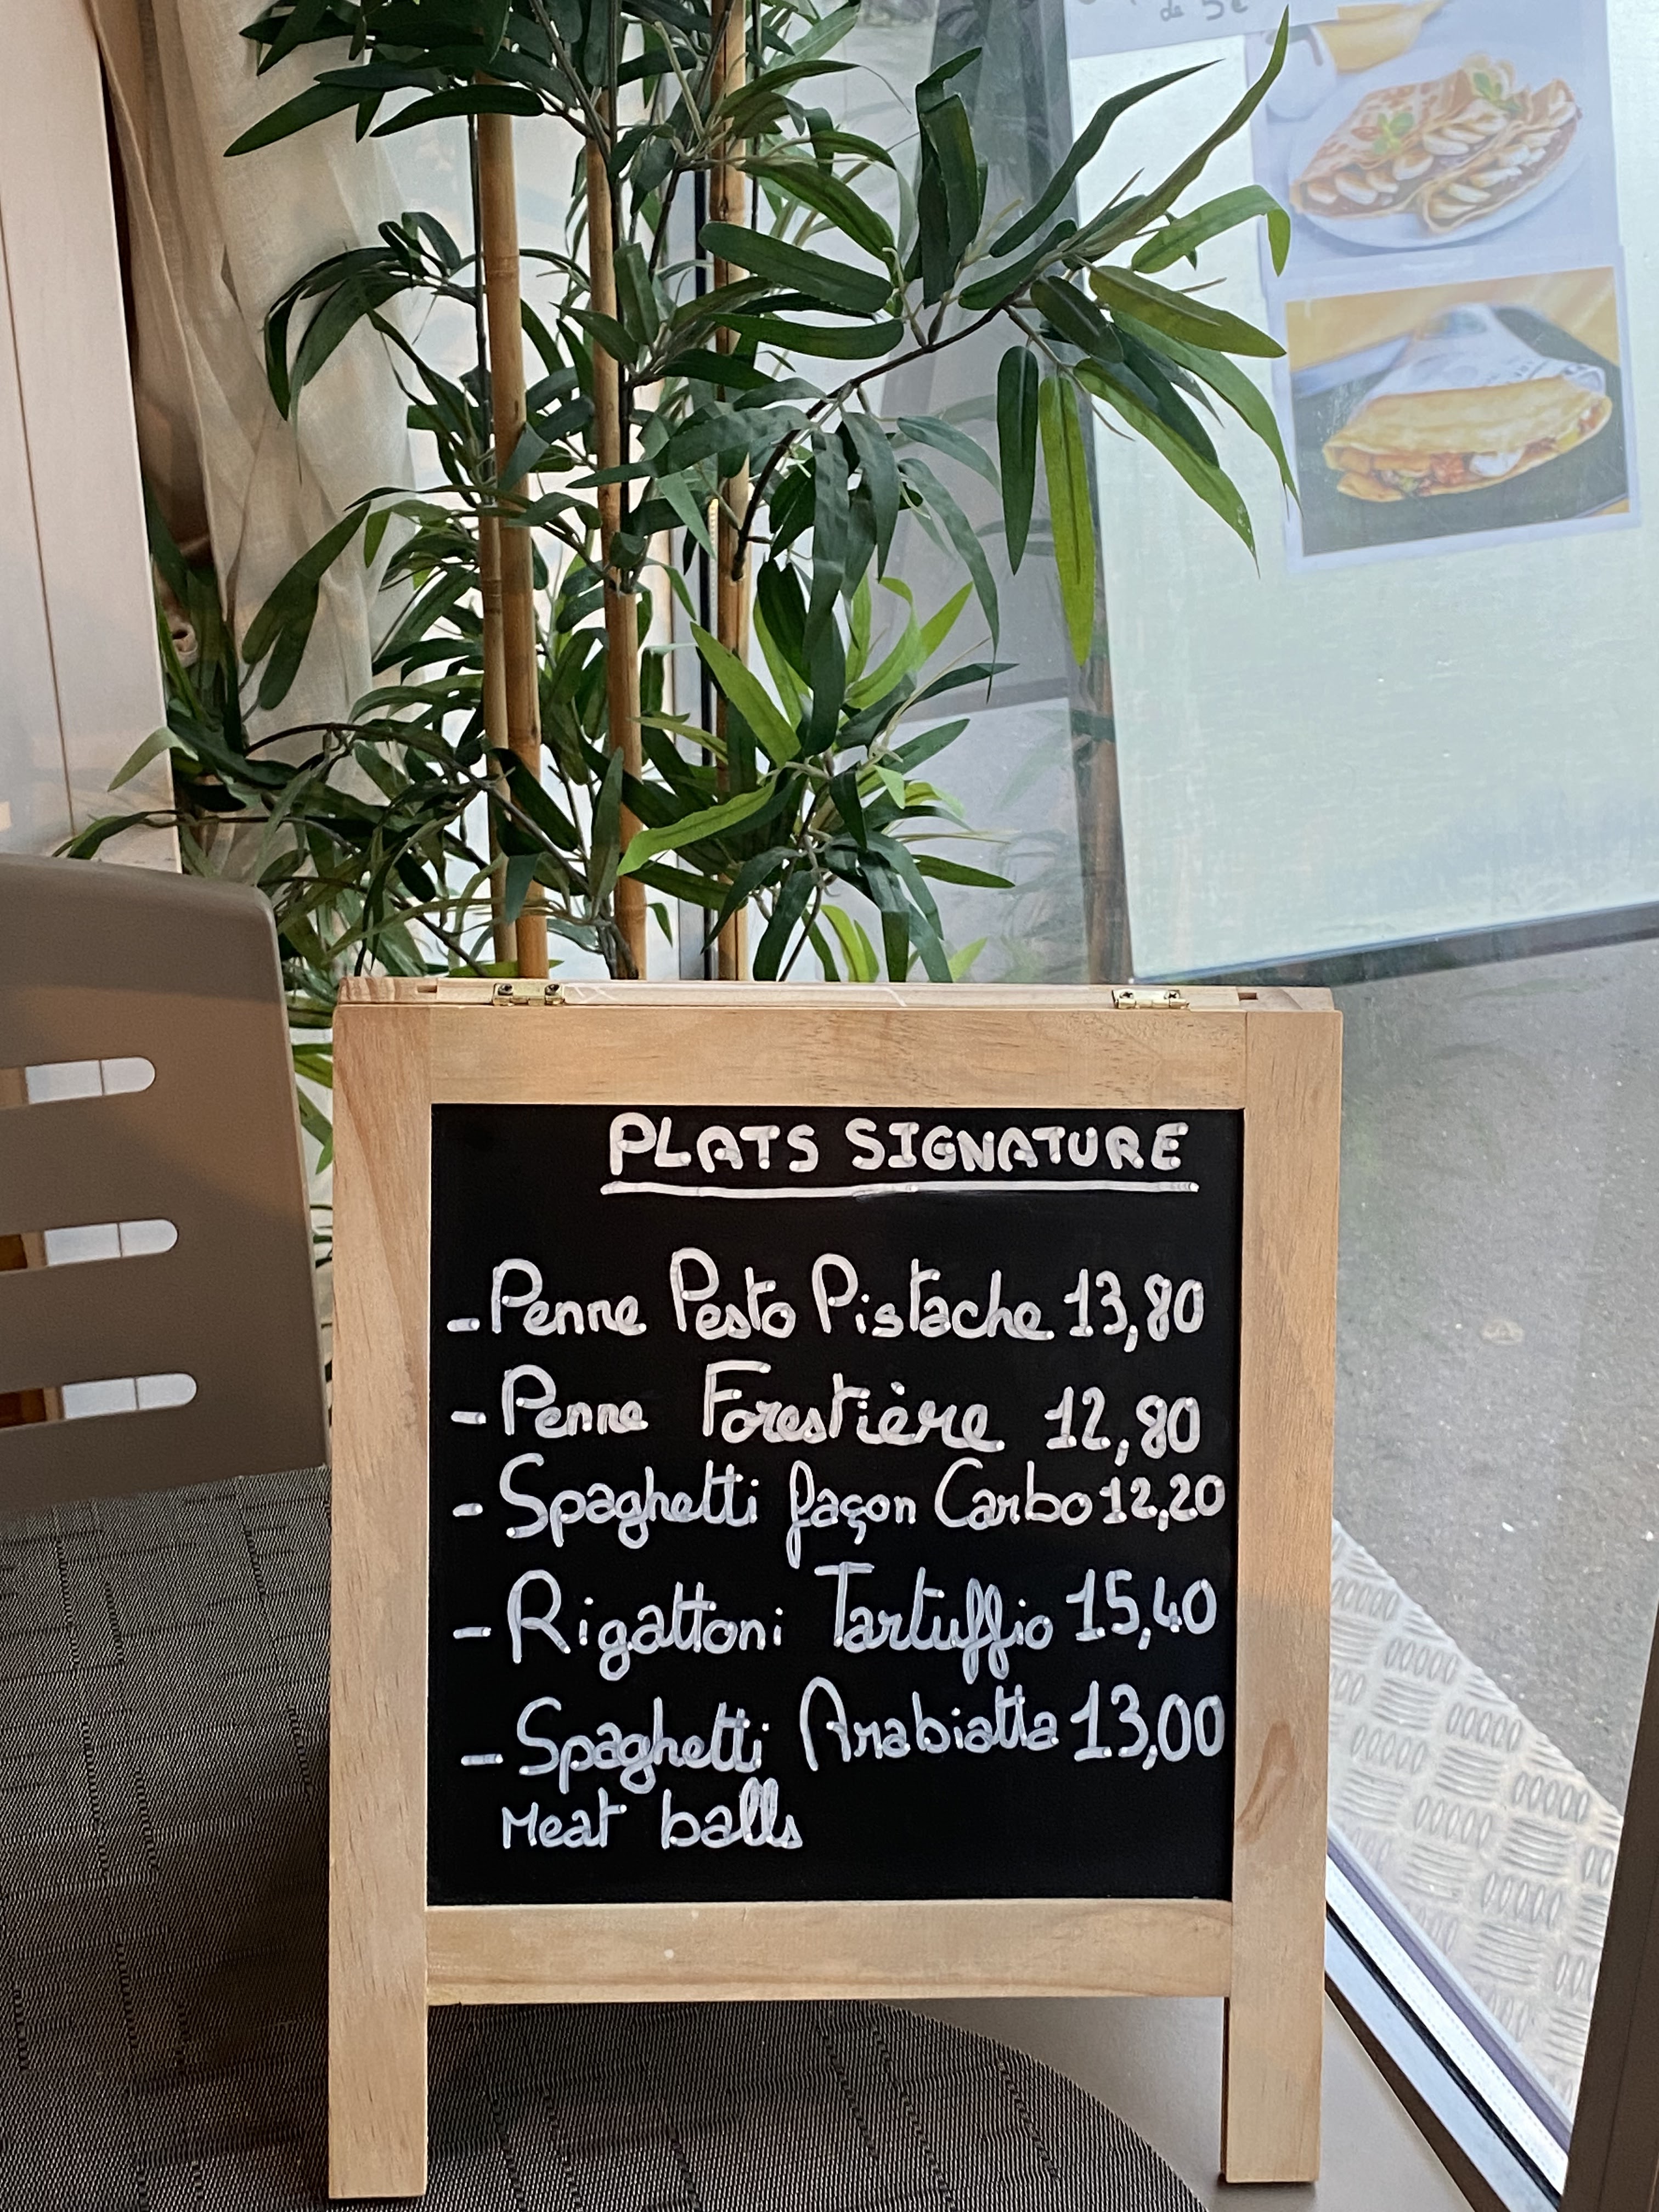 de 5€
PLATS SIGNATURE
- Penne Pesto Pistache 13,80
- Penne Forestière 12,80
- Spaghetti façon Carbo 12,20
- Rigattoni Tartuffio 15,40
- Spaghetti Arabiatta 13,00
Meat balls